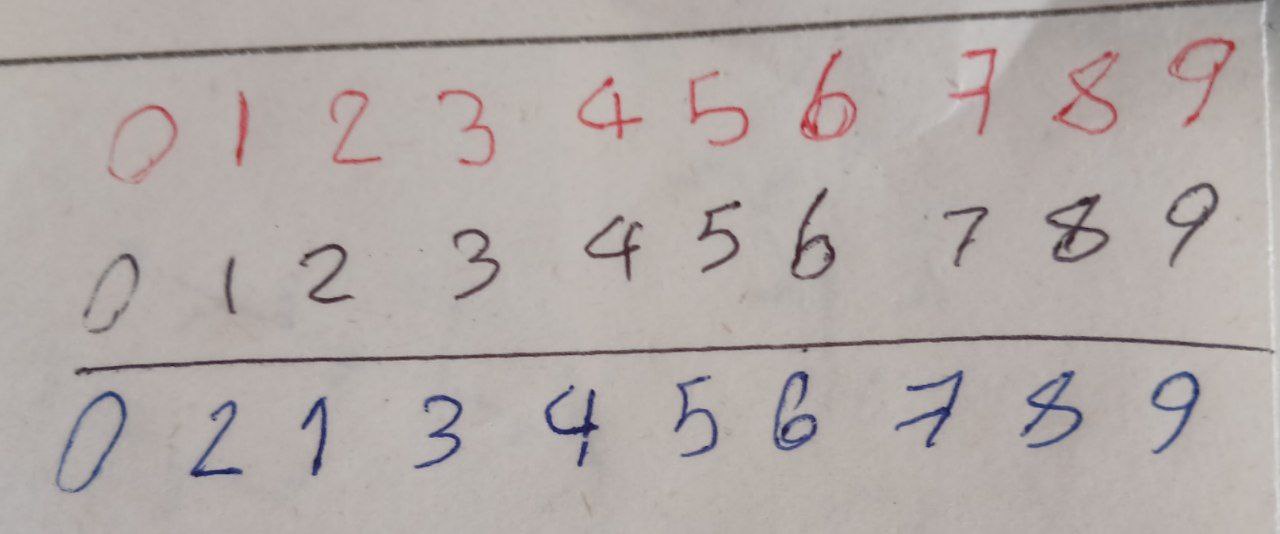 0 1 2 3 4 5 6 7 8 9
0 1 2 3 4 5 6 7 8 9
0 2 1 3 4 5 6 7 8 9